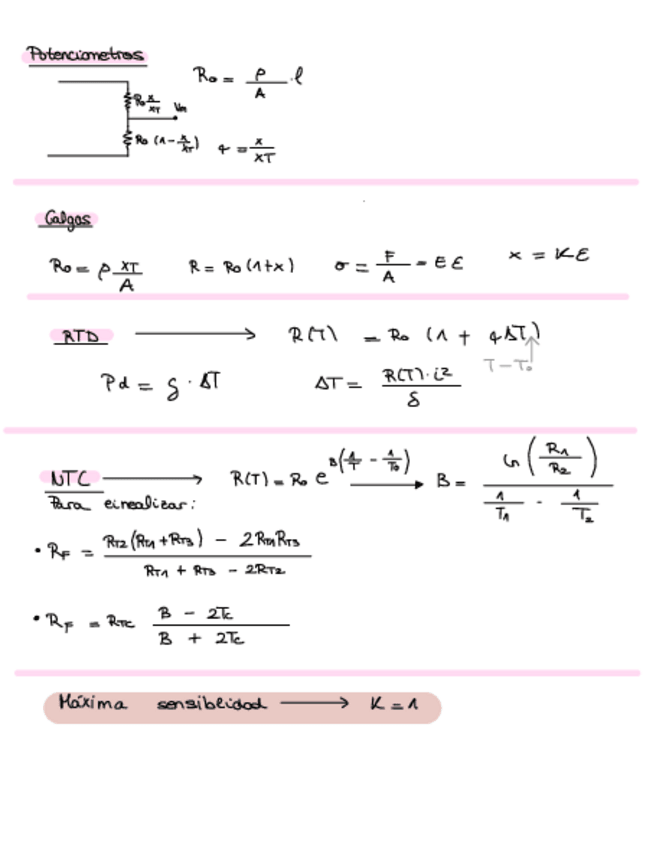 Potenciometros
Ro = ρ/A · l
Ro x/xT
Vm
Ro (1 - x/xT)
α = x/xT
Galgas
Ro = ρ xT/A   R = Ro (1+x)   σ = F/A = E ε   x = K ε
RTD → R(T) = Ro (1 + αΔT)
T - To
Pd = δ · ΔT   ΔT = R(T) · i²/δ
NTC → R(T) = Ro e^B(1/T - 1/To) → B = Ln (R1/R2) / (1/T1 - 1/T2)
Para einealizar:
• RF = RT2 (RT1 + RT3) - 2RT1RT3 / RT1 + RT3 - 2RT2
• RF = RTC B - 2Tc / B + 2Tc
Máxima sensiblidad → K = 1